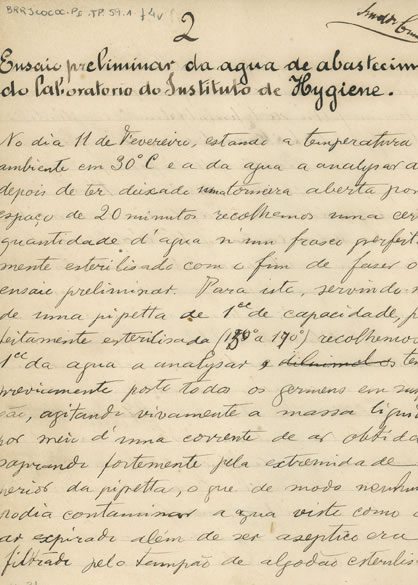 BRRJCOCOC.PE.TP.59.1 f4v
2
Ensaio preliminar da agua de abastecim
do laboratorio do Instituto de Hygiene.
No dia 11 de Fevereiro, estando a temperatura
ambiente em 30°C e a da agua a analysar a
depois de ter deixado uma torneira aberta por
espaço de 20 minutos recolhemos uma cer
quantidade d'agua n'um frasco perfeit
mente esterilisado com o fim de fazer o
ensaio preliminar. Para isto, servindo n
de uma pipetta de 1cc de capacidade, p
feitamente esterilisada (150° a 170°) recolhemos
1cc da agua a analysar e diluimol-os te
previamente posto todos os germens em sus
ão, agitando vivamente a massa liqui
por meio d'uma corrente de ar obtida
soprando fortemente pela extremidade
perior da pipetta, o que de modo nenhu
podia contaminar a agua visto como o
ar expirado além de ser aseptico era
filtrado pelo tampão de algodão esterilis